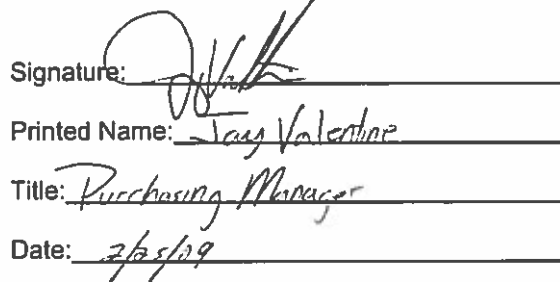 Signature:
Printed Name: Jay Valentine
Title: Purchasing Manager
Date: 2/25/09